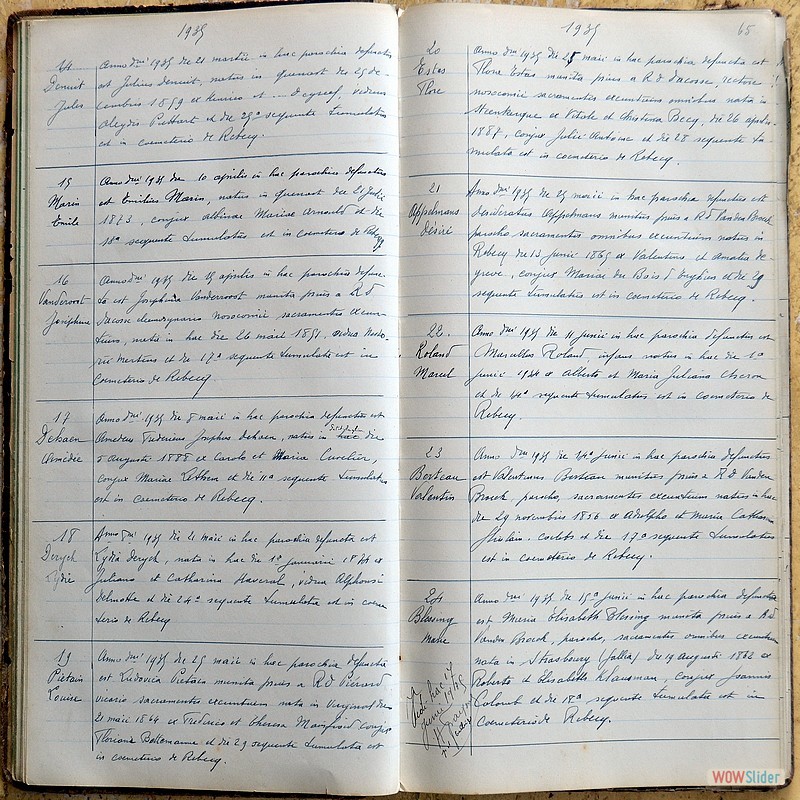 1935
14
Denuit
Jules
Anno dni 1935 die 21 martii in hac parochia defunctus
est Julius Denuit, natus in Quenast die 25 de-
cembris 1859 ex Henrico et ... viduus
et die 23a sequente tumulatus
est in coemeterio de Rebecq.
15
Marin
Emile
Anno dni 1935 die 10 aprilis in hac parochia defunctus
est Emilius Marin, natus in Quenast die 21 Julii
1873, conjux Albinae Mariae Arnould et die
13a sequente tumulatus est in coemeterio de Rebecq
16
Vanderoost
Joséphine
Anno dni 1935 die 15 aprilis in hac parochia defunc-
ta est Josephina Vanderoost munita prius a R d
nosocomii sacramentis excun-
tium, nata in hac die 26 martii 1851, vidua
Mertens et die 17a sequente tumulata est in
coemeterio de Rebecq.
17
Dehaen
Amédée
Anno dni 1935 die 8 maii in hac parochia defunctus est
Amedeus Fredericus Josephus Dehaen, natus in hac die
5 augusti 1888 ex Carolo et Maria Cuvelier,
conjux Mariae et die 11a sequente tumulatus
est in coemeterio de Rebecq.
18
Deryck
Lydie
Anno dni 1935 die 21 maii in hac parochia defuncta est
Lydia Deryck, nata in hac die 1a januarii 1874 ex
Juliano et Catharina Haveral, vidua Alphonsi
Delmotte et die 24a sequente tumulata est in coeme-
terio de Rebecq
19
Piétain
Louise
Anno dni 1935 die 25 maii in hac parochia defuncta
est Ludovica Pietain munita prius a R D Piérard
vicario sacramentis excuntium nata in Virginal die
21 maii 1864 ex Frederico et Theresa conjux
Floriani Bellemanne et die 29 sequente tumulata est
in coemeterio de Rebecq.
1935
65
20
Estas
Flore
Anno dni 1935 die 25 maii in hac parochia defuncta est
Flora Estas munita prius a R D Dacosse, rectore
nosocomii sacramentis excuntium omnibus nata in
Steenkerque ex Vitale et Christina Becq, die 26 aprilis
1887, conjux Julii Antoine et die 28 sequente tu-
mulata est in coemeterio de Rebecq.
21
Appelmans
Désiré
Anno dni 1935 die 25 maii in hac parochia defunctus est
Desideratus Appelmans munitus prius a R D Vanden Broeck
parocho sacramentis omnibus excuntium natus in
Rebecq die 13 junii 1865 ex Valentino et Amatia De-
greve, conjux Mariae du Bois d'Enghien et die 29
sequente tumulatus est in coemeterio de Rebecq.
22
Roland
Marcel
Anno dni 1935 die 11 junii in hac parochia defunctus est
Marcellus Roland, infans natus in hac die 1a
junii 1934 ex Alberto et Maria Juliana
et die 14a sequente tumulatus est in coemeterio de
Rebecq.
23
Berteau
Valentin
Anno dni 1935 die 14a junii in hac parochia defunctus
est Valentinus Berteau munitus prius a R D Vanden
Broeck parocho, sacramentis excuntium natus in hac
die 29 novembris 1856 ex Adolpho et Maria Catharina
Ghislain, coelebs et die 17a sequente tumulatus
est in coemeterio de Rebecq.
24
Blessing
Marie
Anno dni 1935 die 15a junii in hac parochia defuncta
est Maria Elisabeth Blessing munita prius a R D
Vanden Broeck, parocho, sacramentis omnibus excuntium
nata in Strasbourg (Gallia) die 19 augusti 1862 ex
Roberto et Elisabeth Klausman, conjux Joannis
Colonet et die 18a sequente tumulata est in
coemeterio de Rebecq.
hac 17
Junii 1935
WOWSlider